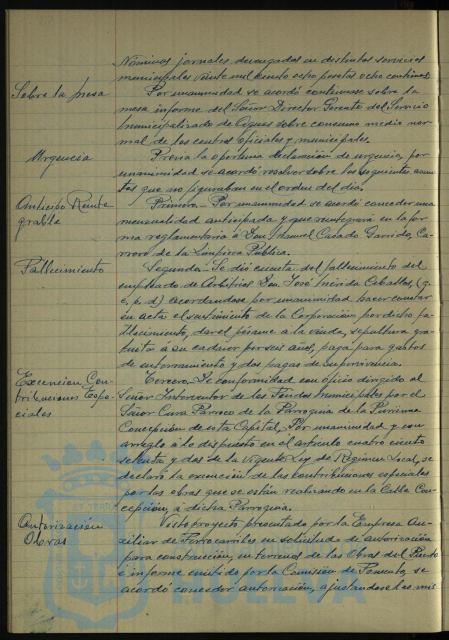 Nóminas jornales devengados en distintos servicios
municipales veinte mil ciento ocho pesetas ocho céntimos
Sobre la mesa
Por unanimidad se acordó continuase sobre la
mesa informe del Señor Director Gerente del Servicio
Municipalizado de Aguas sobre consumo medio nor-
mal de los centros oficiales y municipales.
Urgencia
Previa la oportuna declaración de urgencia, por
unanimidad se acordó resolver sobre los siguientes asun-
tos que no figuraban en el orden del día.
Anticipo Reinte
grable
Primero.- Por unanimidad se acordó conceder una
mensualidad anticipada y que reintegrará en la for-
ma reglamentaria a Don Manuel Casado Garrido, Ca-
rrero de la Limpieza Pública.
Fallecimiento
Segundo.- Se dió cuenta del fallecimiento del
empleado de Arbitrios Don José Ceballos (q.
e. p. d) acordándose por unanimidad hacer constar
en acta el sentimiento de la Corporación por dicho fa-
llecimiento, dar el pésame a la viuda, sepultura gra-
tuita a su cadaver por seis años, paga para gastos
de enterramiento y dos pagas de supervivencia.
Excencion Con-
tribuciones Espe-
ciales
Tercero.- De conformidad con oficio dirigido al
Señor Interventor de los Fondos Municipales por el
Señor Cura Párroco de la Parroquia de la Purísima
Concepción de esta Capital, Por unanimidad y con
arreglo a lo dispuesto en el artículo cuatro ciento
setenta y dos de la vigente Ley de Régimen Local, se
declaró la exención de las contribuciones especiales
por las obras que se están realizando en la Calle Con-
cepción, a dicha Parroquia.
Autorización
Obras
Visto proyecto presentado por la Empresa Au-
xiliar de Ferrocarriles en solicitud de autorización
para construcción, en terrenos de las Obras del Puerto
e informe emitido por la Comisión de Fomento, se
acordó conceder autorización, ajustándose las mis
HUELVA